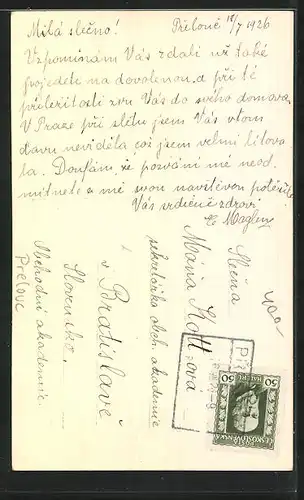 Milá slečno! Přelouč 18/7 1926
Vzpomínám Vás zdali už také
pojedete na dovolenou a při té
příležitosti zvu Vás do svého domova.
V Praze při sletu jsem Vás v tom
davu neviděla což jsem velmi litova
la. Doufám, že pozvání mé neod
mítnete a mě svou návštěvou potěšíte
Vás srdečně zdraví
Slečna
Mária Kottová
sekretářka obch. akademie
v Bratislavě
Slovensko.
Obchodní akademie.
Přelouč
400
50 50
ČESKOSLOVENSKÁ